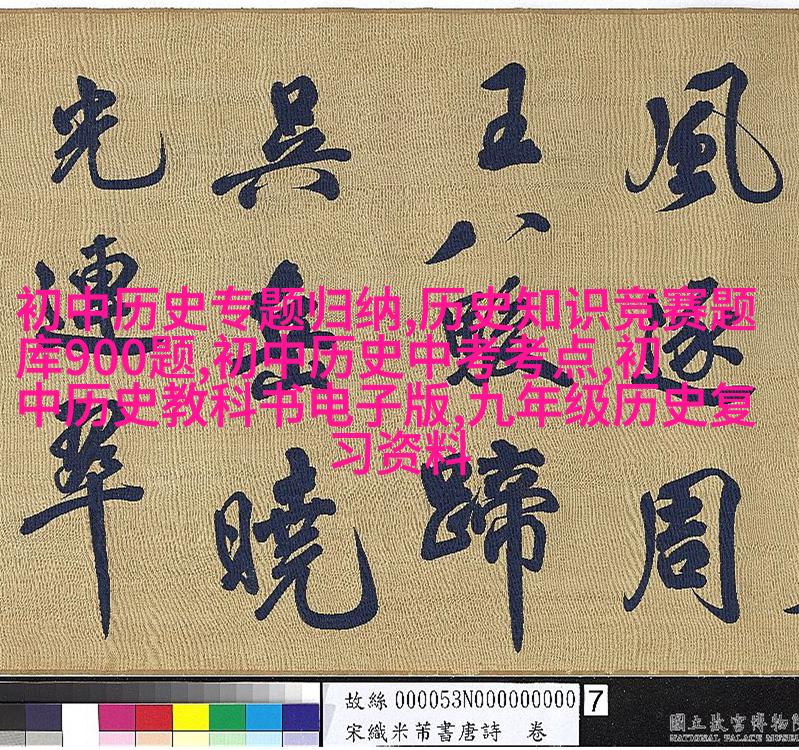 風逐周
王八駿蹄
吳山曉
光連翠
初中历史专题归纳,历史知识竞赛题
库900题,初中历史中考考点,初
中历史教科书电子版,九年级历史复
习资料
故絲000053N000000000 7
宋織米芾書唐詩 卷
國立故宮博物院
NATIONAL PALACE MUSEUM